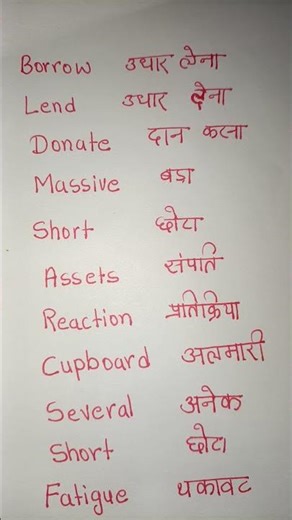 Borrow उधार लेना
Lend उधार देना
Donate दान करना
Massive बड़ा
Short छोटा
Assets संपति
Reaction प्रतिक्रिया
Cupboard अलमारी
Several अनेक
Short छोटा
Fatigue थकावट